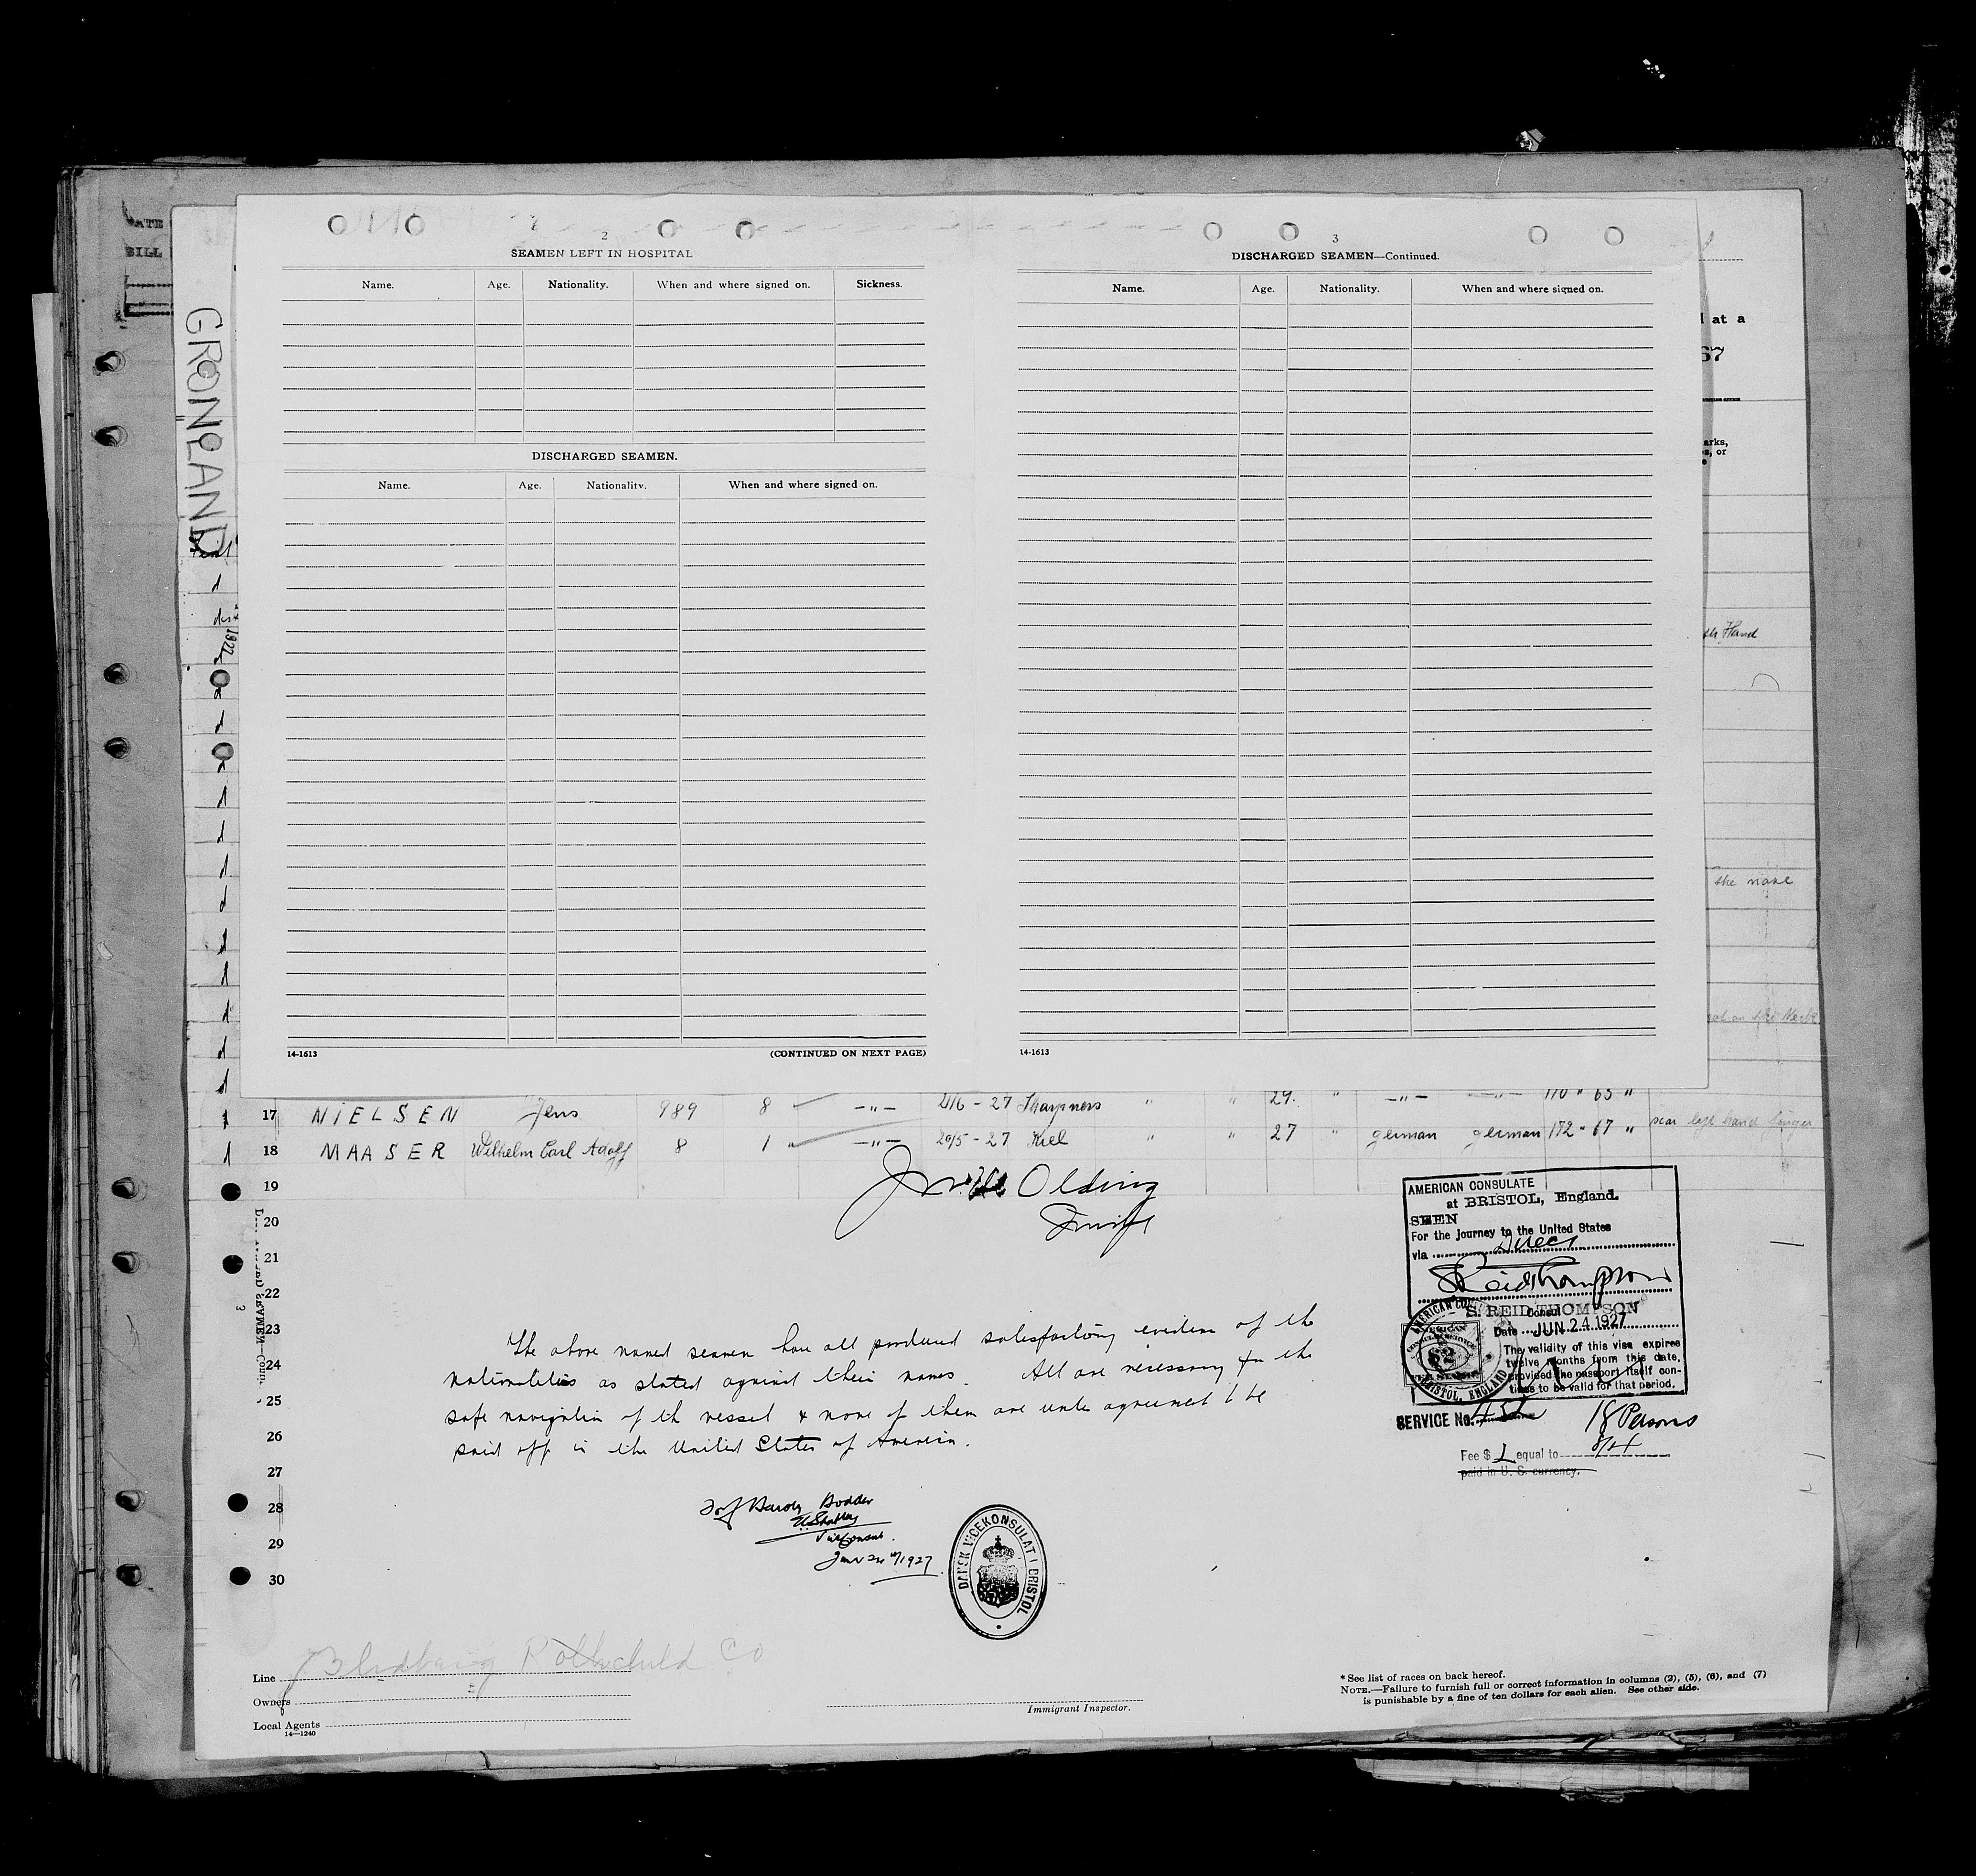 ATE
BILL
GRONLAND
2
SEAMEN LEFT IN HOSPITAL
Name. Age. Nationality. When and where signed on. Sickness.
DISCHARGED SEAMEN.
Name. Age. Nationality. When and where signed on.
14-1613 (CONTINUED ON NEXT PAGE)
3
DISCHARGED SEAMEN—Continued.
Name. Age. Nationality. When and where signed on.
14-1613
at a
67
arks,
s, or
Hand
the nose
on the Neck
17 NIELSEN Jens 989 8 —"— 21/6 - 27 Sharpness " " 29. " —"— —"— 170 " 65 "
18 MAASER Wilhelm Carl Adolf 8 1 " —"— 20/5 - 27 Kiel " " 27 " german german 172 " 67 " scar left hand finger
19
20
21
22
23
24
25
26
27
28
29
30
Olding
AMERICAN CONSULATE
at BRISTOL, England.
SEEN
For the Journey to the United States
via Direct
S. REID THOMPSON
Consul
Date JUN 24 1927
The validity of this visa expires
twelve months from this date,
provided the passport itself con-
tinues to be valid for that period.
AMERICAN
BRISTOL, ENGLAND
SERVICE No. 18 Persons
Fee $ 1 equal to
paid in U. S. currency.
The above named seamen have all produced satisfactory evidence of the
nationalities as stated against their names. All are necessary for the
safe navigation of the vessel & none of them are under agreement to be
paid off in the United States of America.
Vice Consul.
June 24th/1927
DANSK VICEKONSULAT I BRISTOL
Line Rothchild Co
Owners
Local Agents
14—1240
Immigrant Inspector.
* See list of races on back hereof.
NOTE.—Failure to furnish full or correct information in columns (2), (5), (6), and (7)
is punishable by a fine of ten dollars for each alien. See other side.